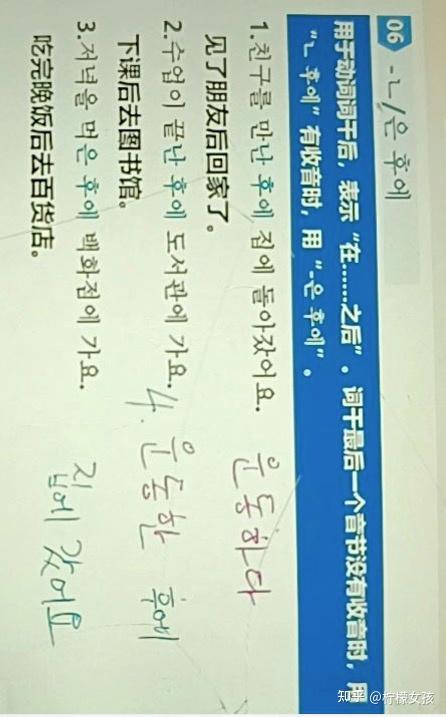 06 -ㄴ/은 후에
用于动词词干后，表示“在……之后”。词干最后一个音节没有收音时，用
“ㄴ 후에”有收音时，用“-은 후에”。
1.친구를 만난 후에 집에 돌아갔어요.
见了朋友后回家了。
운동하다
2.수업이 끝난 후에 도서관에 가요.
下课后去图书馆。
4. 운동한 후에
집에 갔어요
3.저녁을 먹은 후에 백화점에 가요.
吃完晚饭后去百货店。
知乎 @柠檬女孩